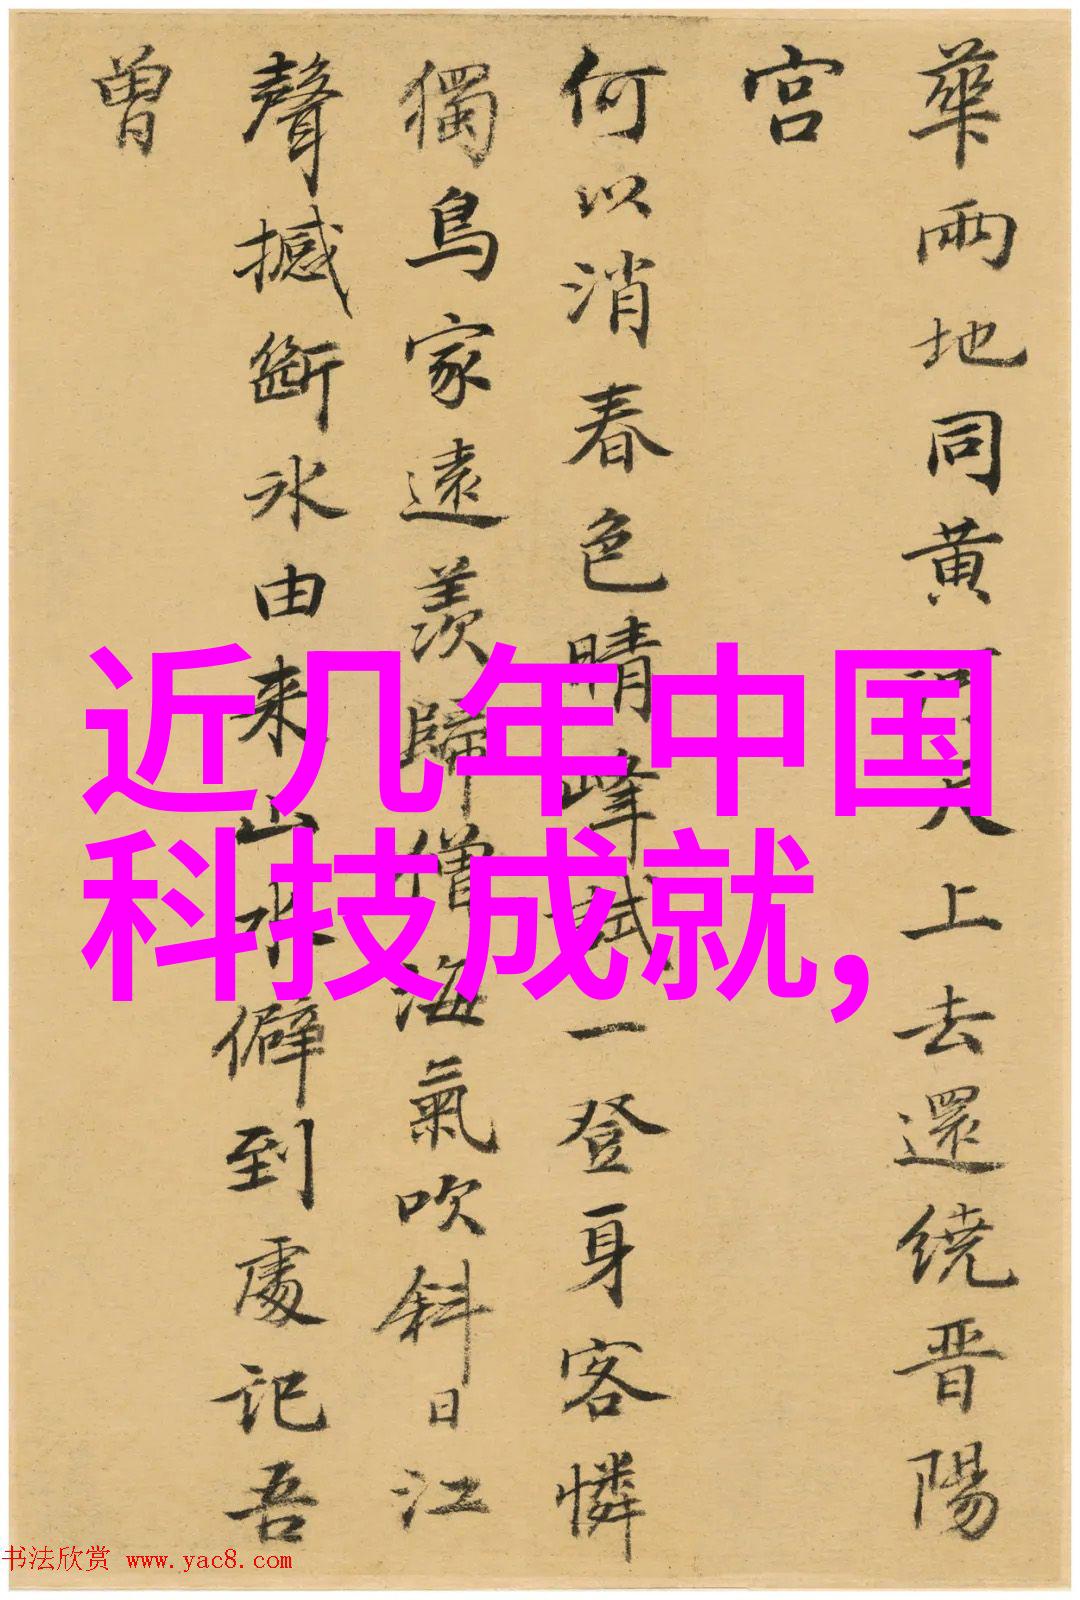 華兩地同黄上去還繞晋陽
宫
何以消春色晴峰試一登身客憐
獨鳥家遠羨歸僧海氣吹斜日江
聲撼斷氷由来山水僻到處記吾
曾
近几年中国
科技成就,
书法欣赏 www.yac8.com